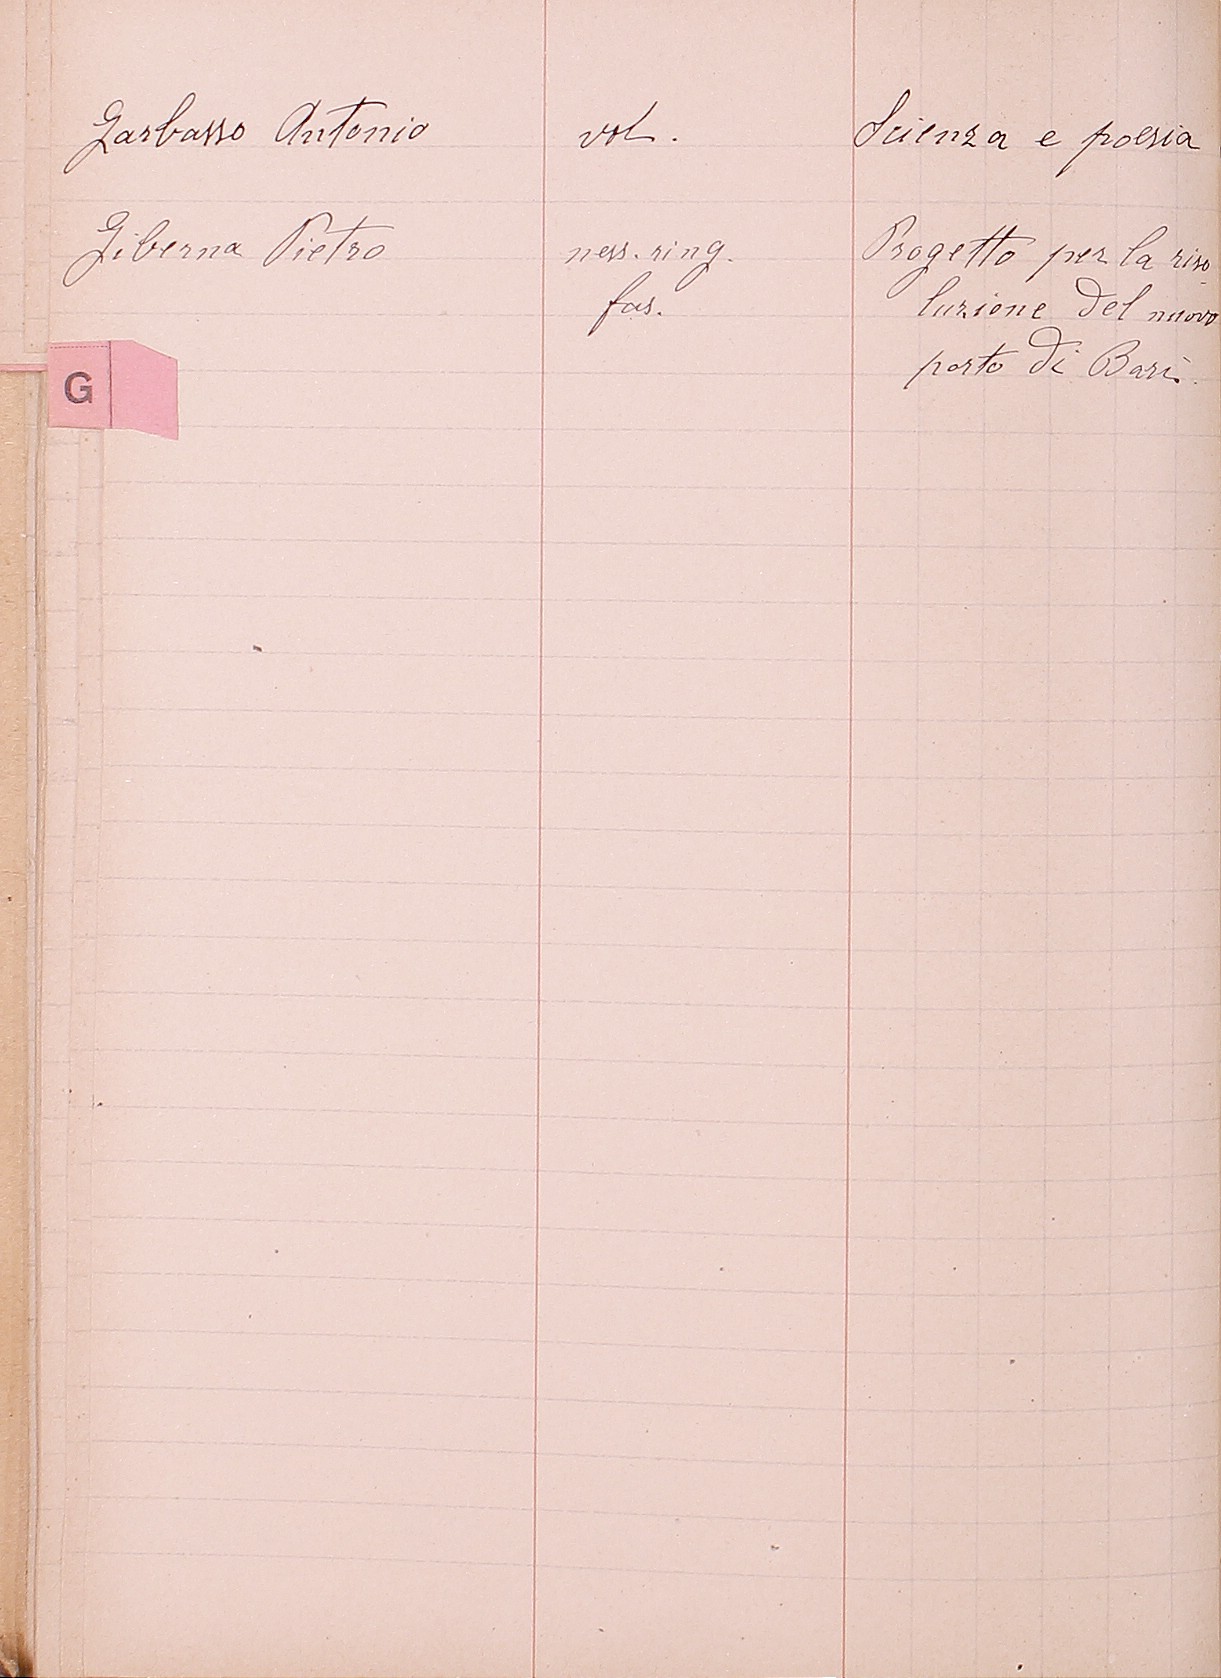 Garbasso Antonio vol. Scienza e poesia
Giberna Pietro ness. ring. Progetto per la riso
fas. luzione del nuovo
porto di Bari.
G